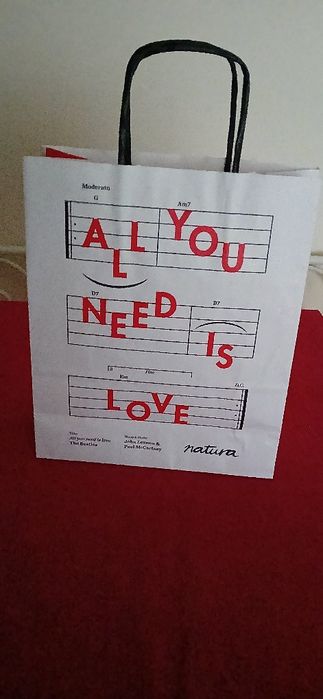 Moderato
G Am7
ALL YOU
D7 D7
NEED IS
Em
LOVE
All you need is love
The Beatles
John Lennon &
Paul McCartney
natura